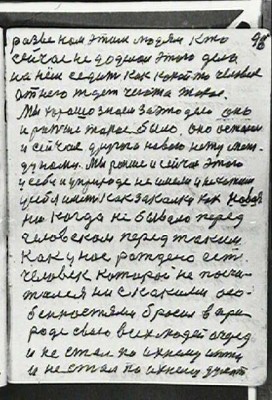 98
разве нам этим людям кто
сейчас не додоны этого дела
на нём сидит как какой то человек
от него ждет чегота такое.
Мы хорошо знаем за это дело оно
и раньше такое было, оно осталось
и сейчас другога новога нету меж
ду нами. Мы раньше и сейчас этого
у себя и у природе не имели и не хотим
у себя иметь как закалку как новое
ни когда не бывало перед
человеком перед таким
как у нас рождено есть
человек которой не посчи-
тался ни с какими осо-
бенностями бросил в при
роде свою всех людей очередь
и не стал по ихнему итти
и не стал по ихнему думать